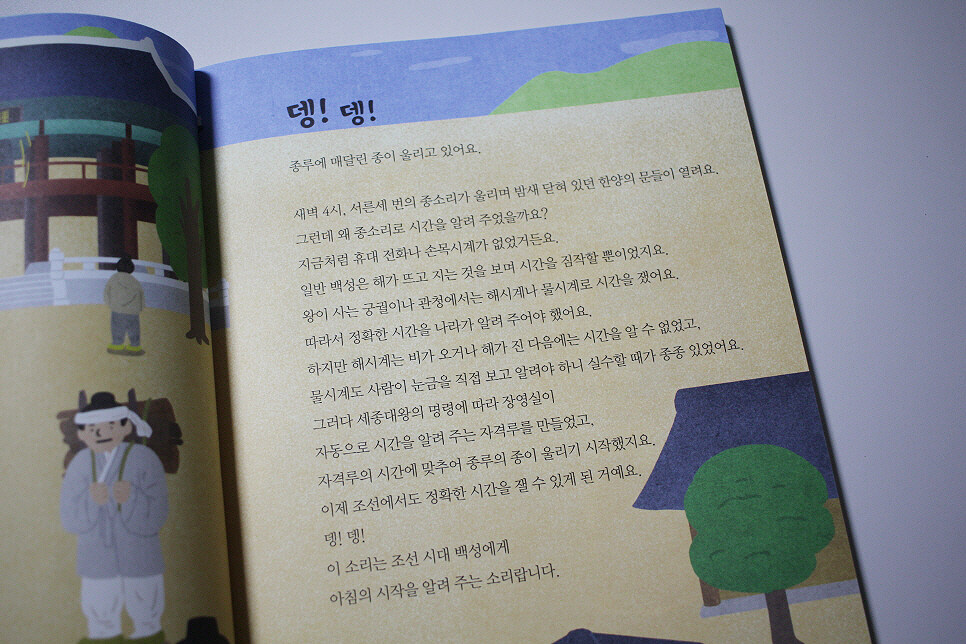 뎅! 뎅!
종루에 매달린 종이 울리고 있어요.
새벽 4시, 서른세 번의 종소리가 울리며 밤새 닫혀 있던 한양의 문들이 열려요.
그런데 왜 종소리로 시간을 알려 주었을까요?
지금처럼 휴대 전화나 손목시계가 없었거든요.
일반 백성은 해가 뜨고 지는 것을 보며 시간을 짐작할 뿐이었지요.
왕이 사는 궁궐이나 관청에서는 해시계나 물시계로 시간을 쟀어요.
따라서 정확한 시간을 나라가 알려 주어야 했어요.
하지만 해시계는 비가 오거나 해가 진 다음에는 시간을 알 수 없었고,
물시계도 사람이 눈금을 직접 보고 알려야 하니 실수할 때가 종종 있었어요.
그러다 세종대왕의 명령에 따라 장영실이
자동으로 시간을 알려 주는 자격루를 만들었고,
자격루의 시간에 맞추어 종루의 종이 울리기 시작했지요.
이제 조선에서도 정확한 시간을 잴 수 있게 된 거예요.
뎅! 뎅!
이 소리는 조선 시대 백성에게
아침의 시작을 알려 주는 소리랍니다.